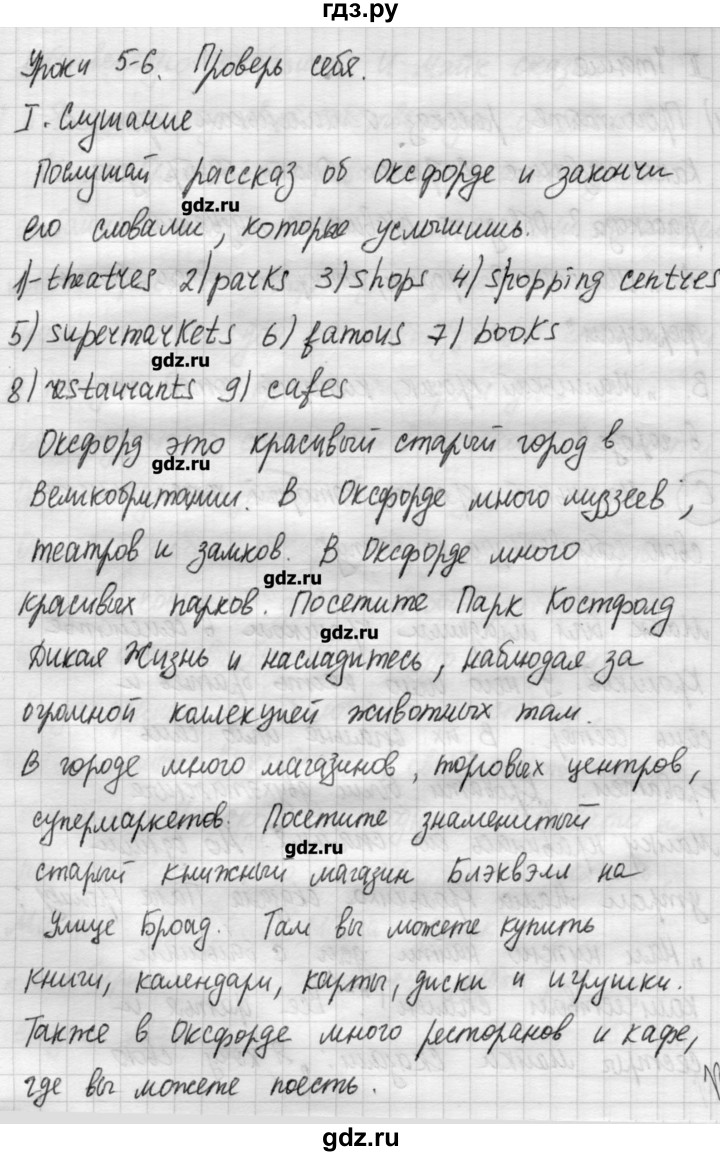 гдз.ру
Уроки 5-6. Проверь себя.
I. Слушание
Послушай рассказ об Оксфорде и закончи
gdz.ru
его словами, которые услышишь.
1)-theatres 2) parks 3) shops 4) shopping centres
5) supermarkets 6) famous 7) books
gdz.ru
8) restaurants 9) cafes
Оксфорд это красивый старый город в
gdz.ru
Великобритании. В Оксфорде много муззеев,
театров и замков. В Оксфорде много
gdz.ru
красивых парков. Посетите Парк Костфолд
gdz.ru
Дикая Жизнь и насладитесь, наблюдая за
огромной коллекцией животных там.
В городе много магазинов, торовых центров,
супермаркетов. Посетите знаменитый
gdz.ru
старый книжный магазин Блэквэлл на
Улице Броад. Там вы можете купить
книги, календари, карты, диски и игрушки.
Также в Оксфорде много ресторанов и кафе,
где вы можете поесть.
gdz.ru